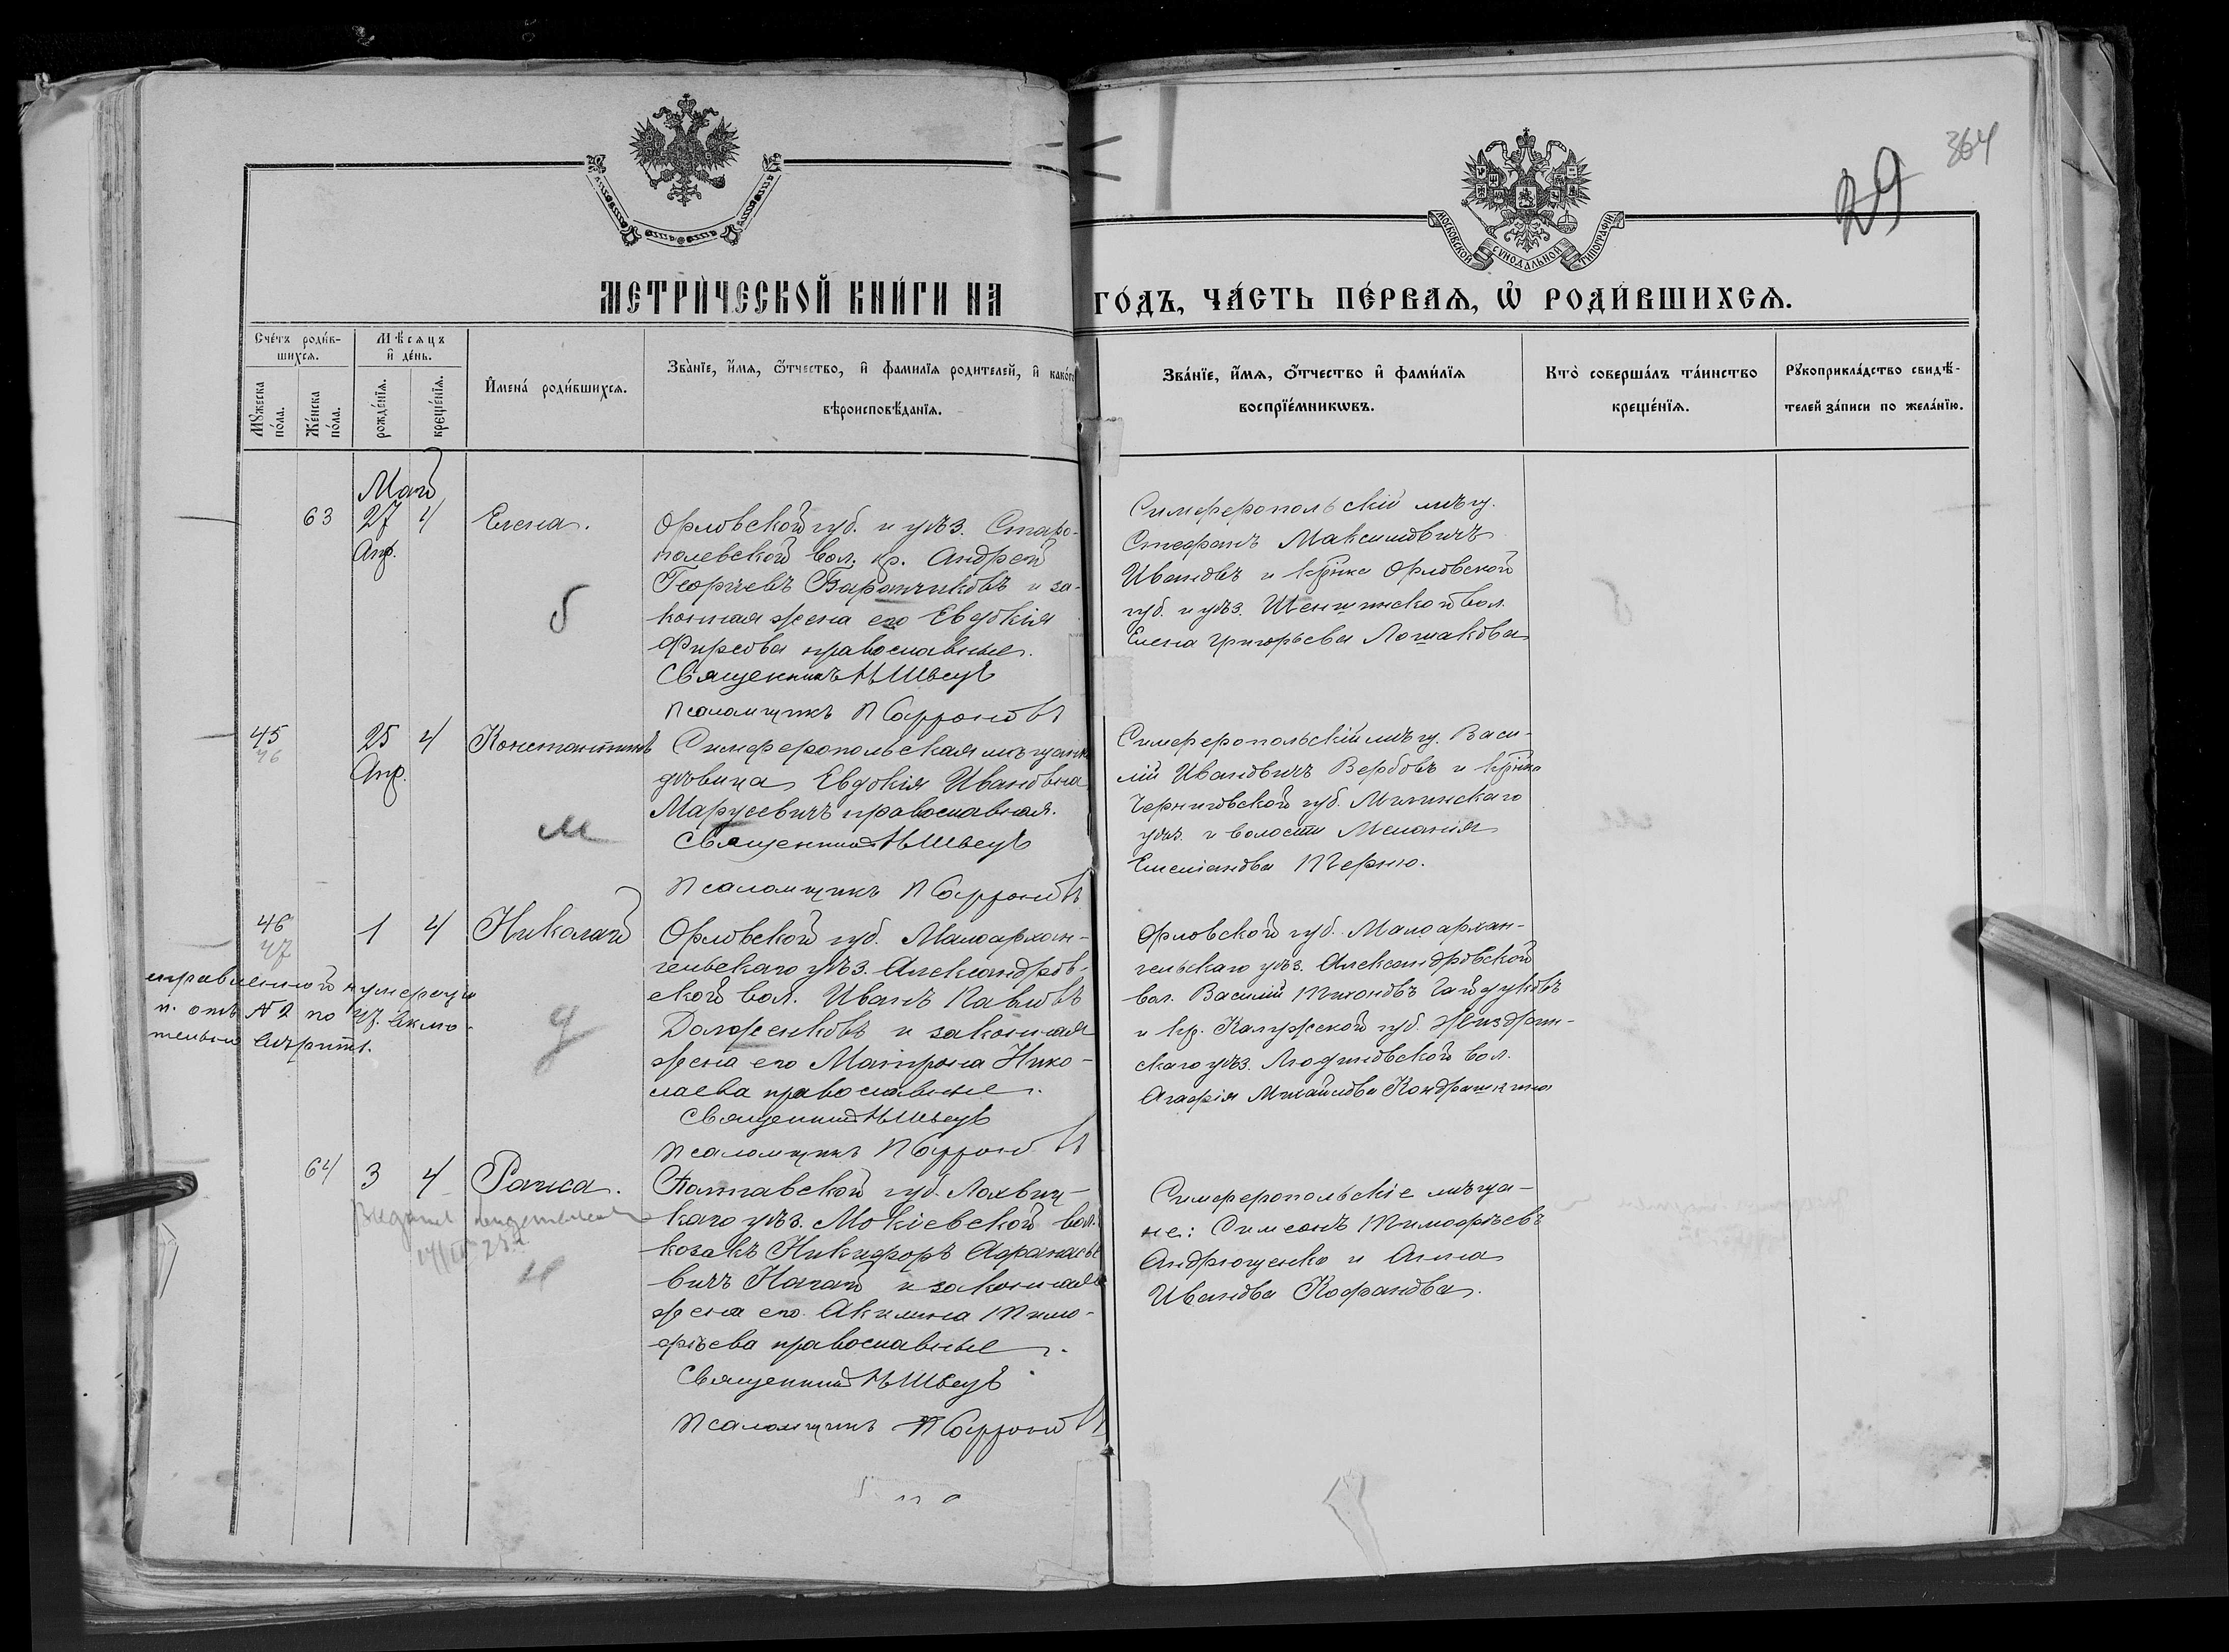 364
29
МОСКОВСКОЙ СѴНОДАЛЬНОЙ ТИПОГРАФІИ
МЕТРИ́ЧЕСКОЙ КНИ́ГИ НА
ГО́ДЪ, ЧА́СТЬ ПЕ́РВАѦ, Ѡ҆ РОДИ́ВШИХСѦ.
Сче́тъ роди́в-
шихсѧ.
Мѣ́сѧцъ
и҆ де́нь.
Мꙋ́жеска
по́ла.
Же́нска
по́ла.
рожде́нїѧ.
креще́нїѧ.
И҆мена̀ роди́вшихсѧ.
Зва́нїе, и҆́мѧ, ѻ҆́тчество, и҆ фами́лїѧ родителей, и҆ како́гѡ
вѣроисповѣ́данїѧ.
Зва́нїе, и҆́мѧ, ѻ҆́тчество и҆ фами́лїѧ
воспрїе́мникѡвъ.
Кто̀ соверша́лъ та́инство
креще́нїѧ.
Рꙋкоприкла́дство свидѣ́-
телей за́писи по жела́нїю.
Май
63 27 4 Елена.
Апр.
Орловской губ. и уѣз. Старо-
полевской вол. кр. Андрей
Георгіевъ Баранчиковъ и за-
конная жена его Евдокія
Фирсова православные.
Священникъ Н Швецъ
Псаломщикъ П Сафроновъ
Симферопольскій мѣщ.
Стефанъ Максимовичъ
Ивановъ и кр-нка Орловской
губ. и уѣз. Шеншинской вол.
Елена Григорьева Лошакова
б
45 25 4 Константинъ
46
Апр.
Симферопольская мѣщанка
дѣвица Евдокія Иванова
Марусевичъ православная.
Священникъ Н Швецъ
Псаломщикъ П Сафроновъ
Симферопольскій мѣщ. Васи-
лій Ивановичъ Вербовъ и кр-нка
Черниговской губ. Мглинскаго
уѣз. и волости Меланія
Емельянова
м
46 1 4 Николай
47
Орловской губ. Малоархан-
гельскаго уѣз. Александров-
ской вол. Иванъ Павловъ
Долженковъ и законная
жена его Матрона Нико-
лаева православные.
Священникъ Н Швецъ
Псаломщикъ П Сафроновъ
Орловской губ. Малоархан-
гельскаго уѣз. Александровской
вол. Василій Тихоновъ Гайдуковъ
и кр. Калужской губ. Жиздрин-
скаго уѣз. Людиновской вол.
Агафія Михайлова Кондрашкина
исправленной нумераціи
п. отъ № 2 по 47 включи-
тельно вѣрить.
д
64 3 4 Раиса.
Полтавской губ. Лохвиц-
каго уѣз. Мокіевской вол.
козакъ Никифоръ Афанасье-
вичъ Нагай и законная
жена его Акилина Тимо-
фѣева православные.
Священникъ Н Швецъ
Псаломщикъ П Сафроновъ
Симферопольскіе мѣща-
не: Симеонъ Тимофѣевъ
Андрющенко и Анна
Иванова Кофанова.
н